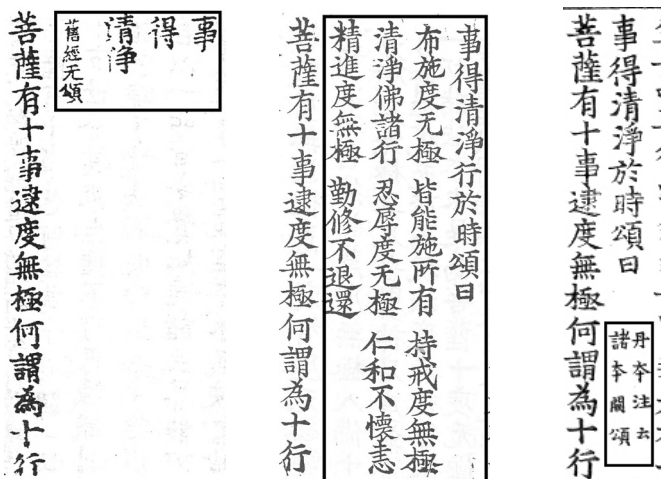 事
得
清淨
舊經无頌
菩薩有十事逮度無極何謂為十行
事得清淨行於時頌曰
布施度无極 皆能施所有 持戒度無極
清淨佛諸行 忍辱度无極 仁和不懷恚
精進度無極 勤修不退還
菩薩有十事逮度無極何謂為十行
事得清淨於時頌曰
丹本注云
諸本闕頌
菩薩有十事逮度無極何謂為十行